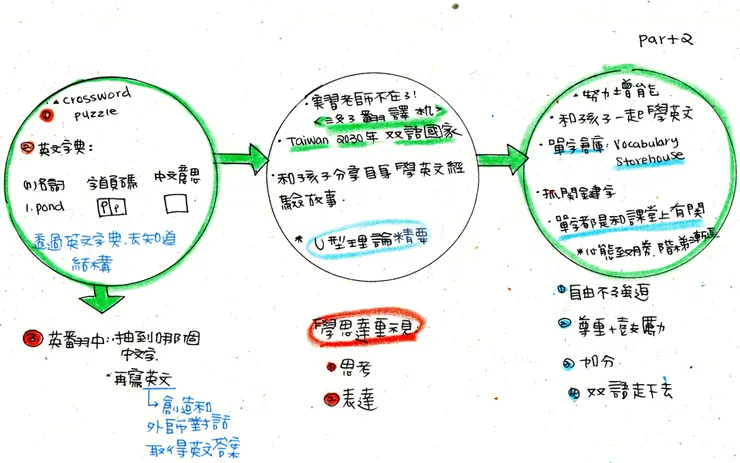 part2
・crossword
puzzle
① 
② 英文字典：
(n)名詞 字首尾碼 中文意思
1. pond P p
透過英文字典,去知道
結構
③ 英翻中：・抽到哪個
中文字.
・再寫英文
創造和
外師對話
取得英文答案
・實習老師不在了!
翻譯机
・Taiwan 2030年 双語國家
・和孩子分享自身學英文經
驗故事.
* U型理論精要
學思達重視:
① 思考
② 表達
・努力增能
・和孩子一起學英文
・單字倉庫: Vocabulary
Storehouse
・抓関鍵字
・單字都是和課堂上有関
*心態致勝.
① 自由不強迫
② 尊重+鼓勵
③ 加分
④ 双語走下去